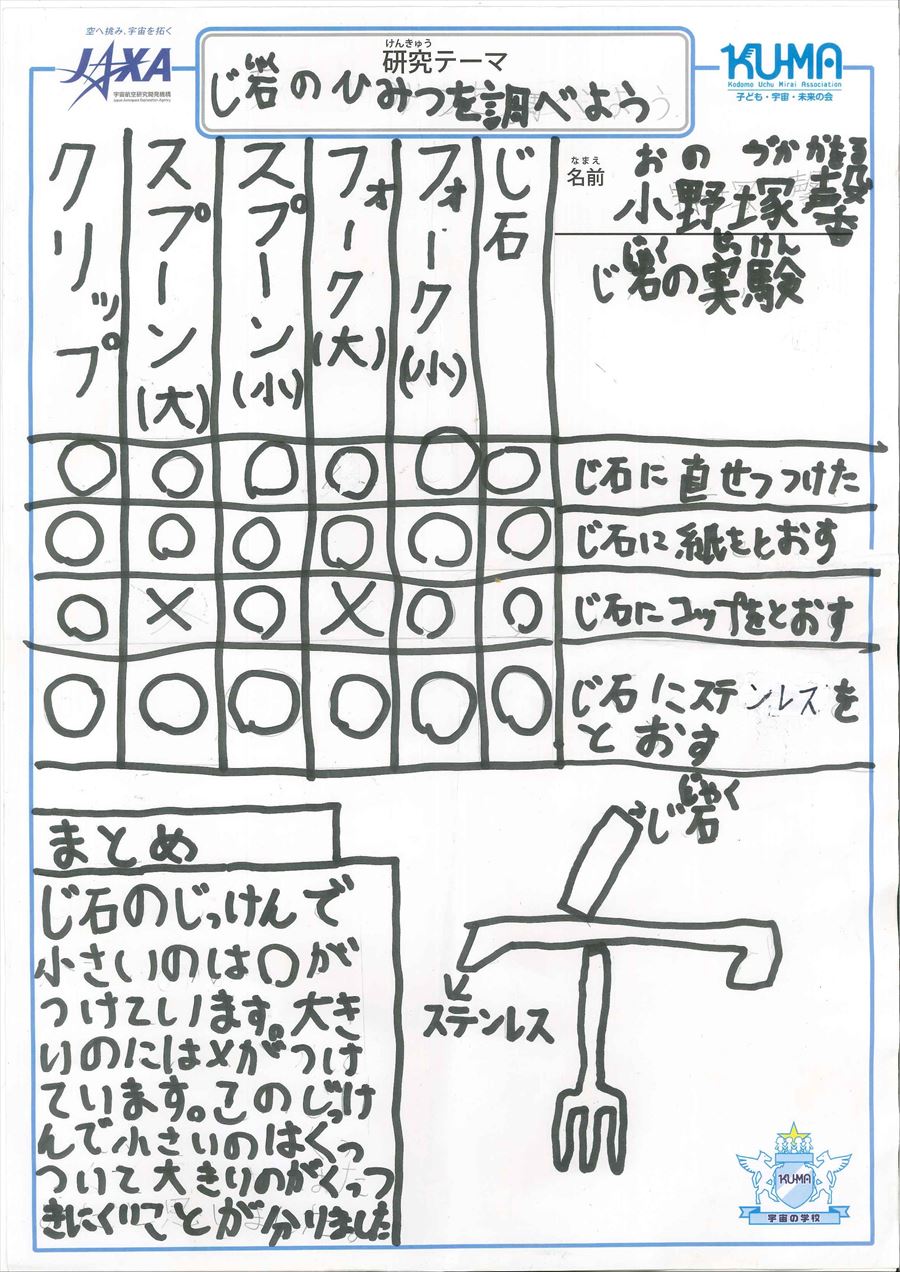 空へ挑み、宇宙を拓く
JAXA
宇宙航空研究開発機構
Japan Aerospace Exploration Agency
けんきゅう
研究テーマ
じ石のひみつを調べよう
KU-MA
Kodomo Uchu Mirai Association
子ども・宇宙・未来の会
なまえ
名前
おのづか かをる
小野塚 馨
じ石の実験
じっけん
じ石
フォーク(小)
フォーク(大)
スプーン(小)
スプーン(大)
クリップ
じ石に直せつつけた
○ ○ ○ ○ ○ ○
じ石に紙をとおす
○ ○ ○ ○ ○ ○
じ石にコップをとおす
○ × ○ × ○ ○
じ石にステンレスを
とおす
○ ○ ○ ○ ○ ○
まとめ
じ石のじっけんで
小さいのは○が
つけています。大き
いのには×がつけ
ています。このじっけ
んで小さいのはくっ
ついて大きいのがくっつ
きにくいことが分りました
じしゃく
じ石
ステンレス
KU-MA
宇宙の学校